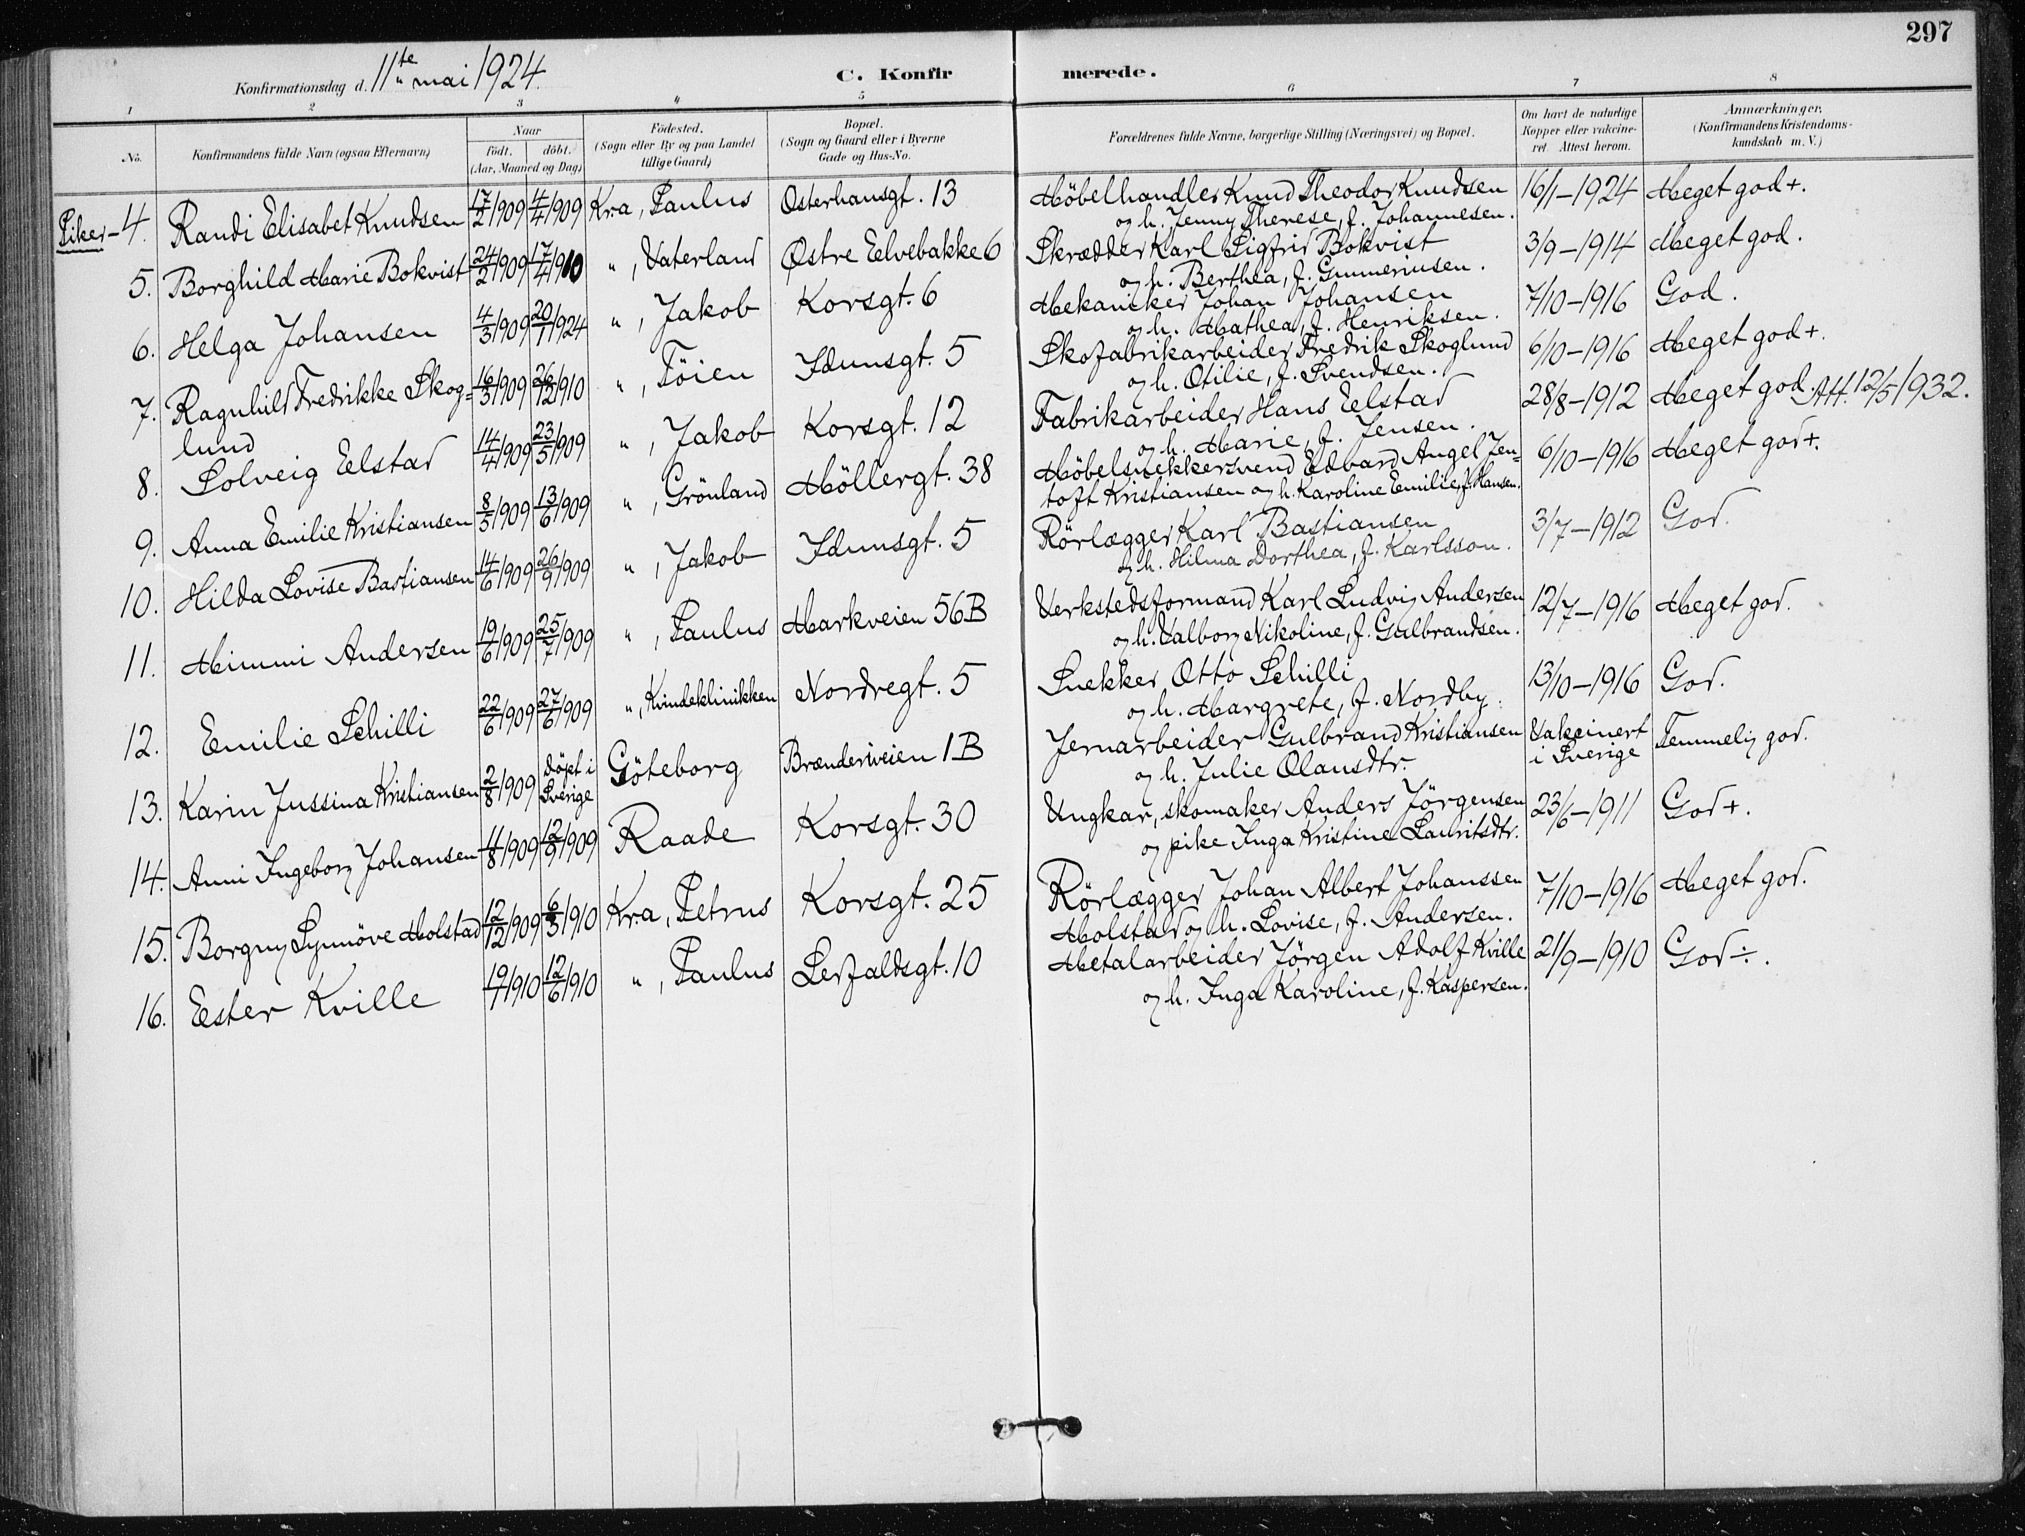 297
Konfirmationsdag d. 11te mai 1924.
C. Konfir merede.
1 2 3 4 5 6 7 8
No. Konfirmandens fulde Navn (ogsaa Efternavn) Naar født. døbt. (Aar, Maaned og Dag) Fødested. (Sogn eller By og paa Landet tillige Gaard) Bopæl. (Sogn og Gaard eller i Byerne Gade og Hus-No. Forældrenes fulde Navne, borgerlige Stilling (Næringsvei) og Bopæl. Om havt de naturlige Kopper eller vakcineret. Attest herom. Anmærkninger. (Konfirmandens Kristendomskundskab m. V.)
Piker - 4. Randi Elisabet Knudsen 17/2 1909 4/4 1909 Kr.a, Paulus Osterhausgt. 13 Møbelhandler Knud Theodor Knudsen 16/1-1924 Meget god +.
og h. Jenny Therese, f. Johannesen.
5. Borghild Marie Bokvist 24/2 1909 17/4 1910 ", Vaterland Østre Elvebakke 6 Skrædder Karl Sigfrid Bokvist 3/9-1914 Meget god.
og h. Berthea, f. Gunneriusen.
6. Helga Johansen 4/3 1909 20/1 1924 ", Jakob Korsgt. 6 Mekaniker Johan Johansen 7/10-1916 God.
og h. Mathea, f. Henriksen.
7. Ragnhild Fredrikke Skog= 16/3 1909 26/12 1910 ", Tøien Idunsgt. 5 Skofabrikarbeider Fredrik Skoglund 6/10-1916 Meget god +.
lund og h. Otilie, f. Svendsen.
8. Solveig Elstad 14/4 1909 23/5 1909 ", Jakob Korsgt. 12 Fabrikarbeider Hans Elstad 28/8-1912 Meget god. Att. 12/5 1932.
og h. Marie, f. Jensen.
9. Anna Emilie Kristiansen 8/5 1909 13/6 1909 ", Grønland Møllergt. 38 Møbelsnekkersvend Edvard Angel Jen= 6/10-1916 Meget god +.
toft Kristiansen og h. Karoline Emilie, f. Hansen.
10. Hilda Lovise Bastiansen 14/6 1909 26/9 1909 ", Jakob Idunsgt. 5 Rørlægger Karl Bastiansen 3/7-1912 God.
og h. Hilma Dorthea, f. Karlsson.
11. Mimmi Andersen 19/6 1909 25/7 1909 ", Paulus Markveien 56B Verkstedsformand Karl Ludvig Andersen 12/7-1916 Meget god.
og h. Valborg Nikoline, f. Gulbrandsen.
12. Emilie Schilli 22/6 1909 27/6 1909 ", Kvindeklinikken Nordregt. 5 Snekker Otto Schilli 13/10-1916 God.
og h. Margrete, f. Nordby.
13. Karin Jussina Kristiansen 2/8 1909 Døpt i Sverige Göteborg Brænderiveien 1B Jernarbeider Gulbrand Kristiansen Vakcinert i Sverige Temmelig god.
og h. Julie Olausdtr.
14. Anni Ingeborg Johansen 11/8 1909 12/9 1909 Raade Korsgt. 30 Ungkar, skomaker Anders Jørgensen 23/6-1911 God +.
og pike Inga Kristine Lauritsdtr.
15. Borgny Synnöve Molstad 12/12 1909 6/3 1910 Kr.a, Petrus Korsgt. 25 Rørlægger Johan Albert Johanssen 7/10-1916 Meget god.
Molstad og h. Lovise, f. Andersen.
16. Ester Kville 19/1 1910 12/6 1910 ", Paulus Leirfaldsgt. 10 Metalarbeider Jørgen Adolf Kville 21/9-1910 God ÷.
og h. Inga Karoline, f. Kaspersen.